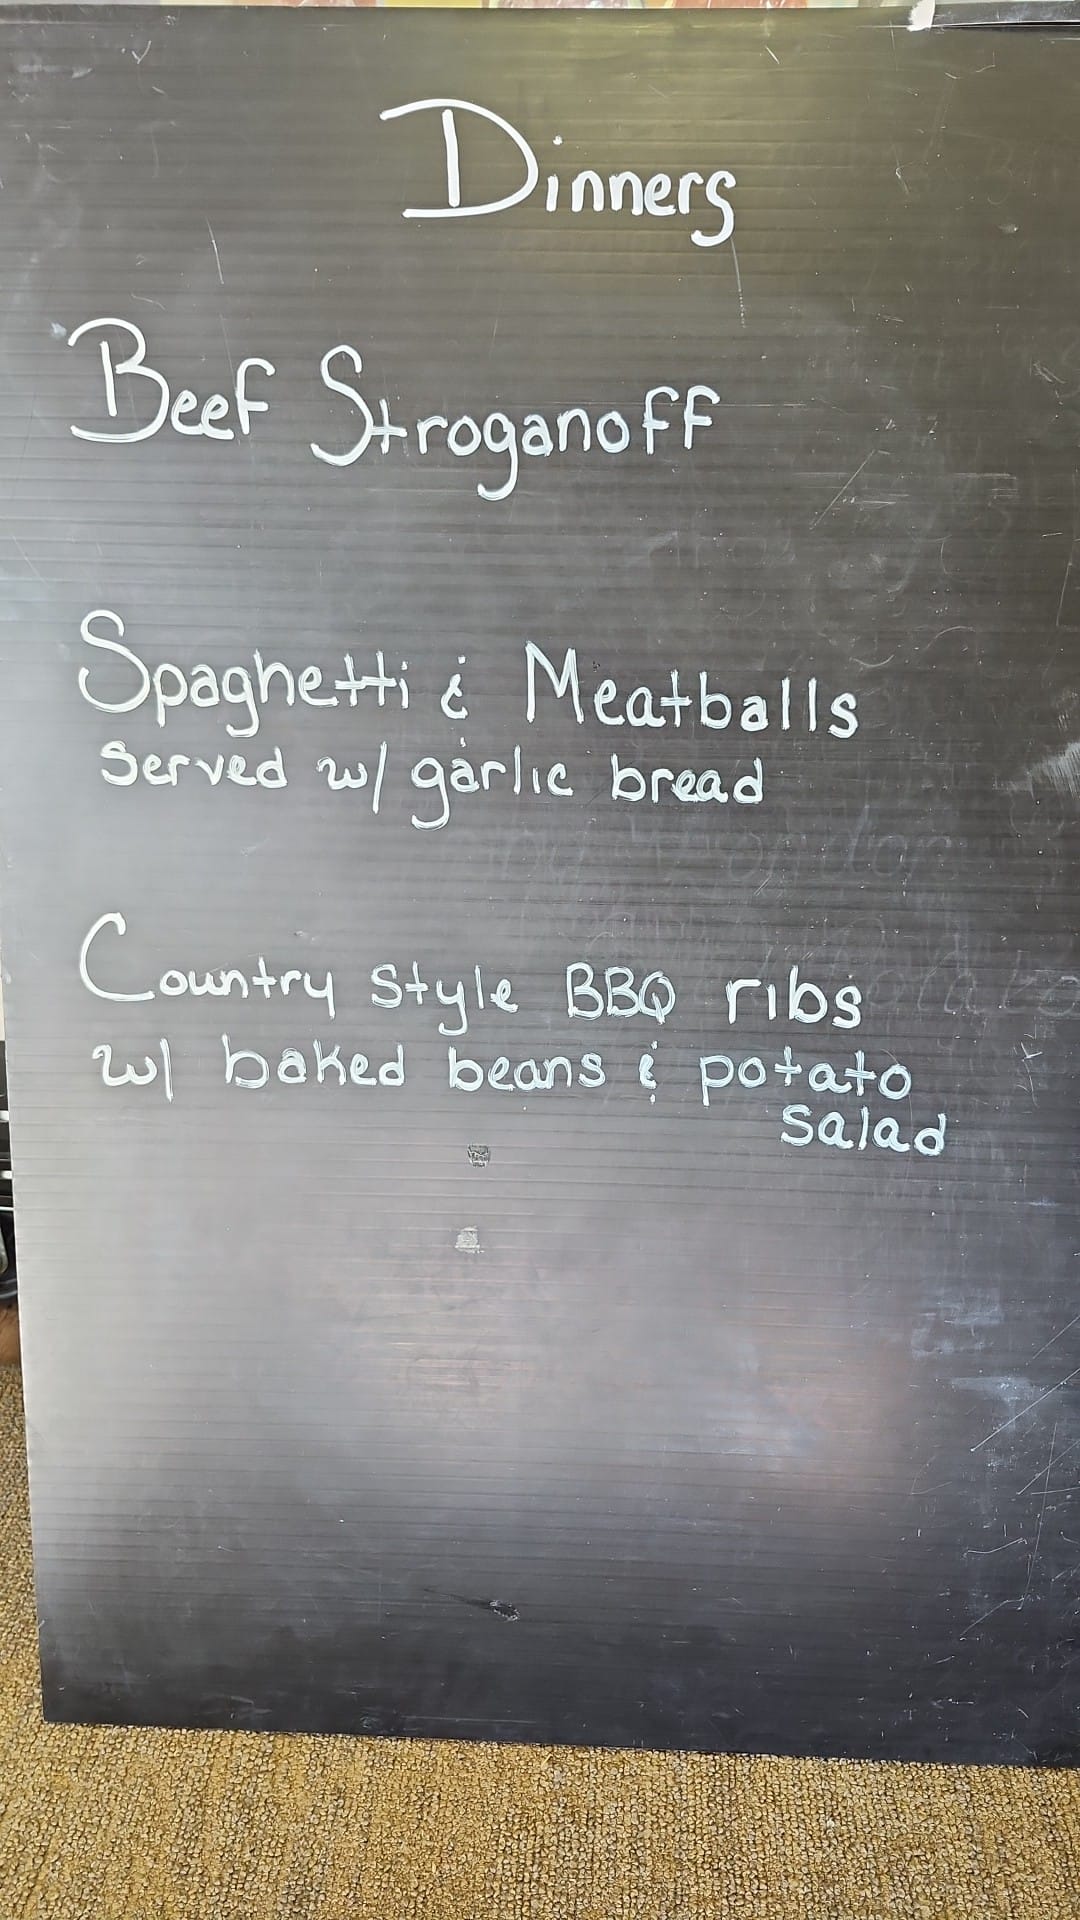 Dinners
Beef Stroganoff
Spaghetti & Meatballs
served w/ garlic bread
Country Style BBQ ribs
w/ baked beans & potato
salad